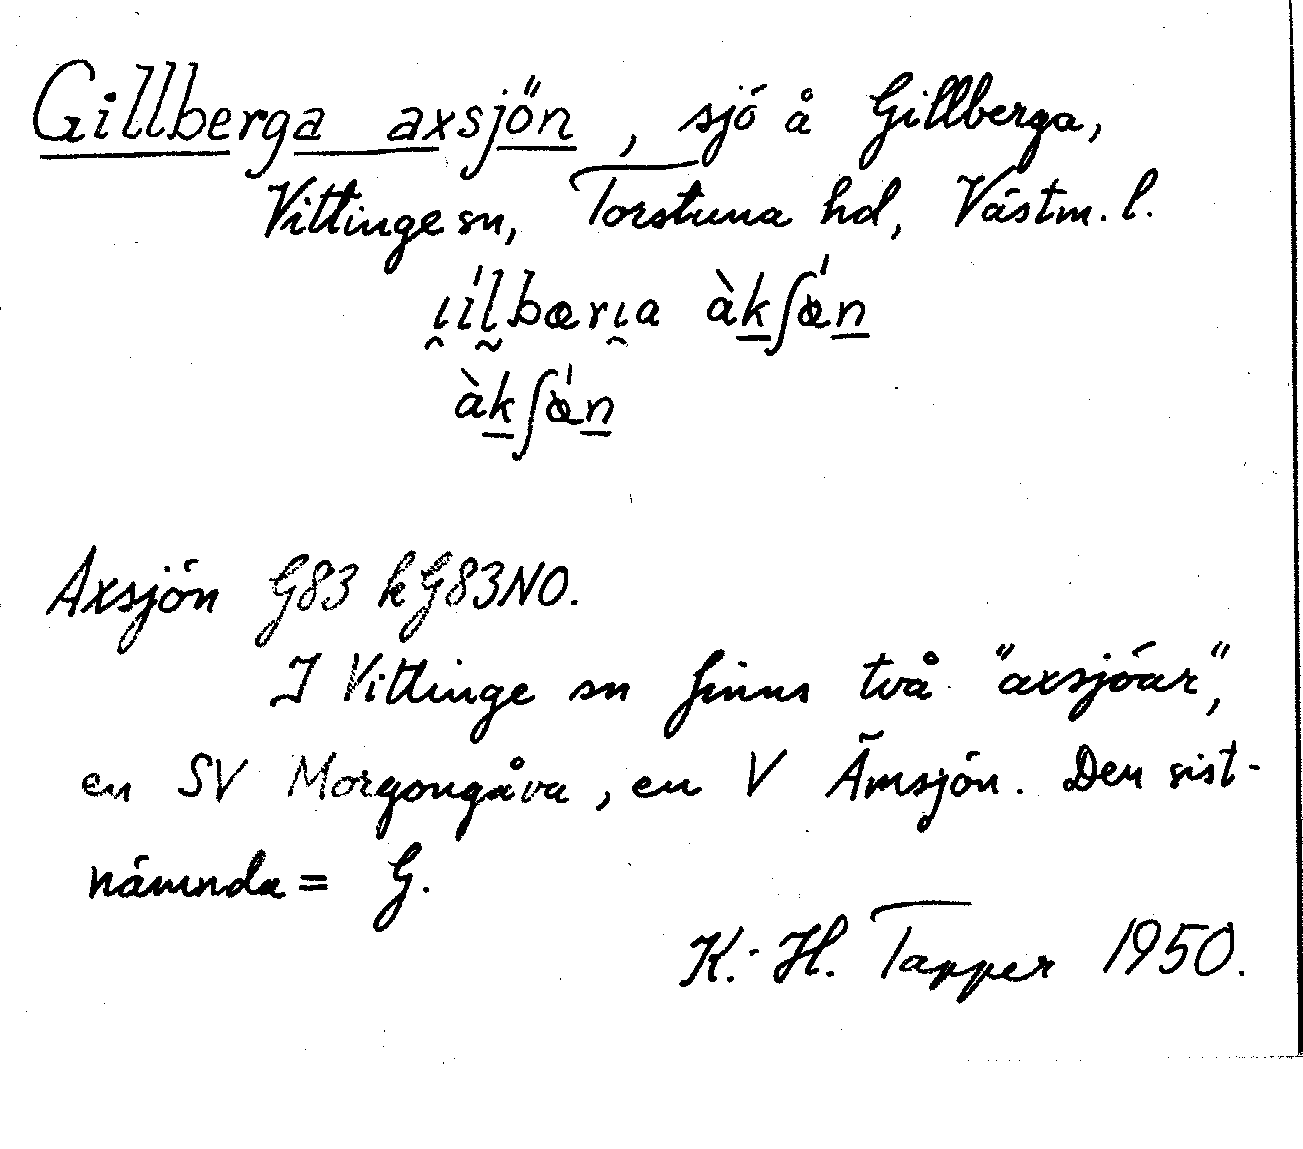 Gillberga axsjön, sjö å Gillberga,
Vittinge sn, Torstuna hd, Västm. l.
Axsjön G83 k G83NO.
I Vittinge sn finns två "axsjöar",
en SV Morgongåva, en V Ämsjön. Den sist-
nämnda = G.
K.-H. Tapper 1950.